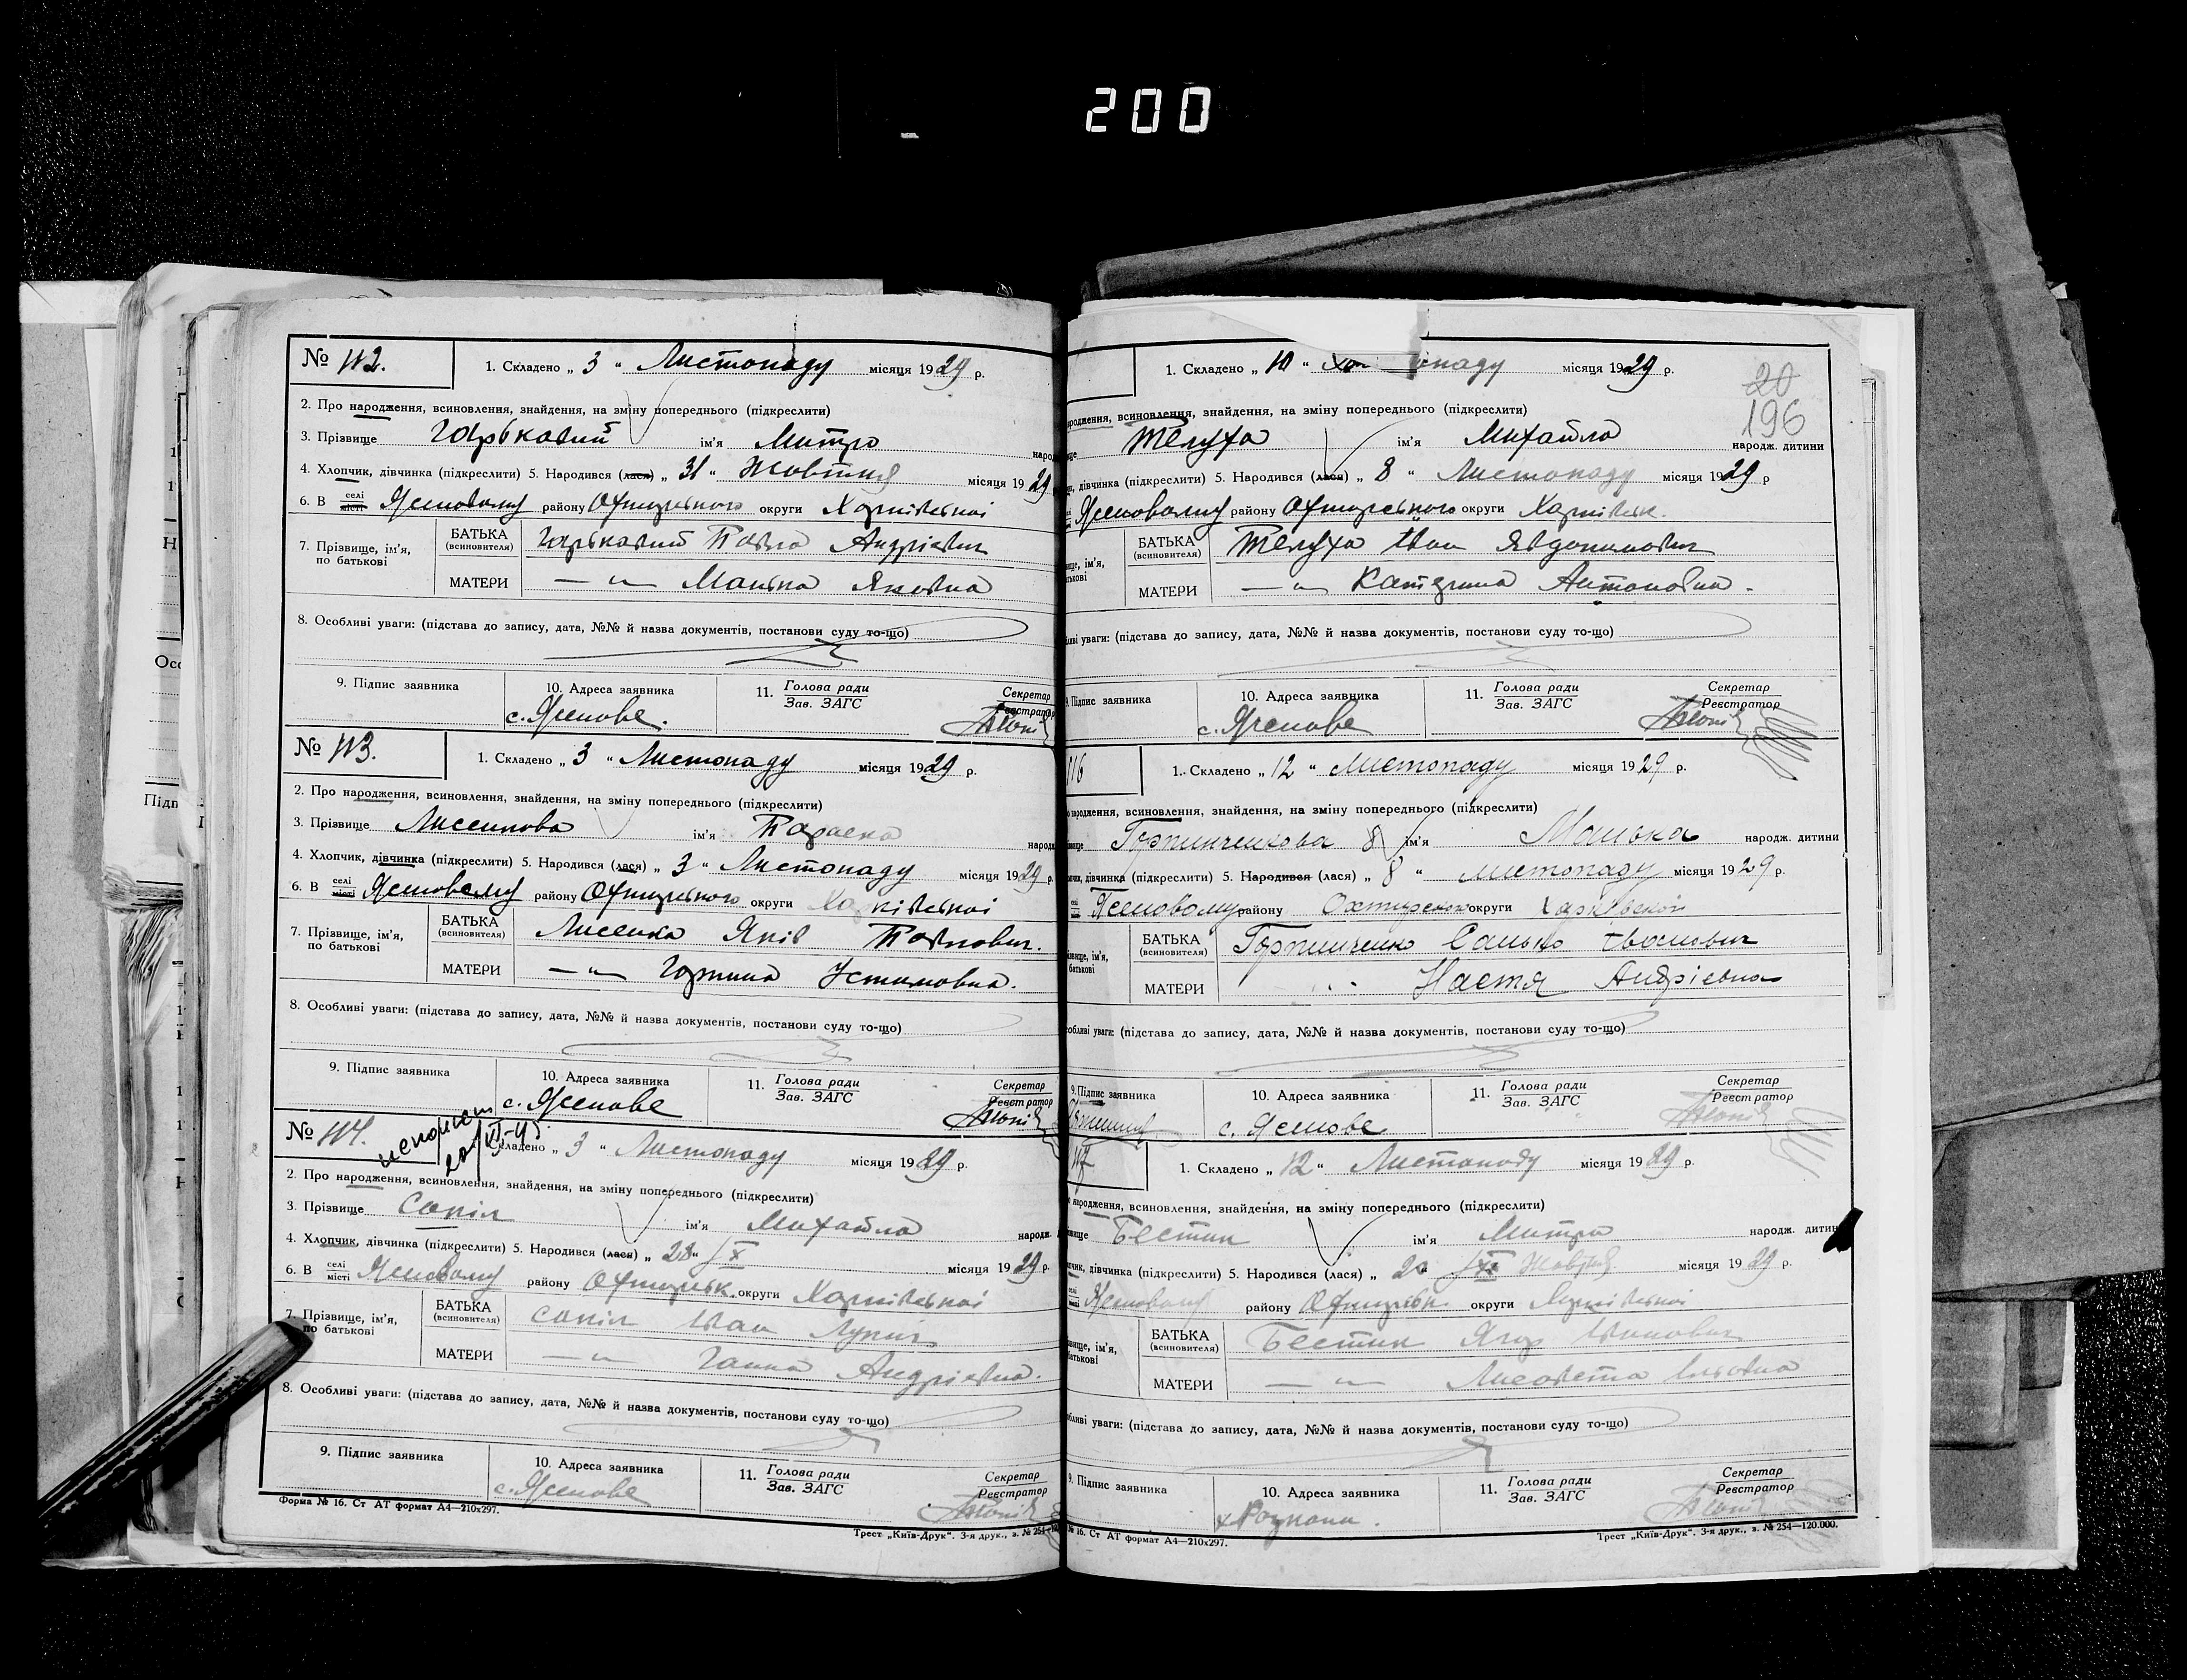 200
№ 112.
1. Складено „ 3 “ Листопаду місяця 1929 р.
2. Про народження, всиновлення, знайдення, на зміну попереднього (підкреслити)
3. Прізвище Горьковий ім'я Митро народ
4. Хлопчик, дівчинка (підкреслити) 5. Народився (лася) „ 31 “ Жовтня місяця 1929 р
6. В селі місті Ясеновому району Охтирського округи Харківської
7. Прізвище, ім'я, по батькові
БАТЬКА (всиновителя) Горьковий Павло Андрієвич
МАТЕРИ — „ — Манька Яковна
8. Особливі уваги: (підстава до запису, дата, №№ й назва документів, постанови суду то-що)
9. Підпис заявника
10. Адреса заявника с. Ясенове.
11. Голова ради Зав. ЗАГС
Секретар Реєстратор
№ 113.
1. Складено „ 3 “ Листопаду місяця 1929 р.
2. Про народження, всиновлення, знайдення, на зміну попереднього (підкреслити)
3. Прізвище Лисенкова ім'я Параска народ
4. Хлопчик, дівчинка (підкреслити) 5. Народився (лася) „ 3 “ Листопаду місяця 1929 р.
6. В селі місті Ясеновому району Охтирського округи Харківської
7. Прізвище, ім'я, по батькові
БАТЬКА (всиновителя) Лисенко Яків Павлович.
МАТЕРИ — „ — Горпина Устимовна.
8. Особливі уваги: (підстава до запису, дата, №№ й назва документів, постанови суду то-що)
9. Підпис заявника
10. Адреса заявника с. Ясенове
11. Голова ради Зав. ЗАГС
Секретар Реєстратор
№ 114.
Складено „ 3 “ Листопаду місяця 1929 р.
2. Про народження, всиновлення, знайдення, на зміну попереднього (підкреслити)
3. Прізвище Сапін ім'я Михайло народж.
4. Хлопчик, дівчинка (підкреслити) 5. Народився (лася) „ 28 “ /X місяця 1929 р.
6. В селі місті Ясеновому району Охтирськ. округи Харківської
7. Прізвище, ім'я, по батькові
БАТЬКА (всиновителя) Сапін Іван
МАТЕРИ — „ — Ганна Андрієвна.
8. Особливі уваги: (підстава до запису, дата, №№ й назва документів, постанови суду то-що)
9. Підпис заявника
10. Адреса заявника с. Ясенове
11. Голова ради Зав. ЗАГС
Секретар Реєстратор
Форма № 16. Ст АТ формат А4—210х297.
Трест „Київ-Друк“. 3-я друк., з. № 254—12
1. Складено „ 10 “ опаду місяця 1929 р.
20
196
родження, всиновлення, знайдення, на зміну попереднього (підкреслити)
ще Телуха ім'я Михайло народж. дитини
дівчинка (підкреслити) 5. Народився (лася) „ 8 “ Листопаду місяця 1929 р
Ясеновому району Охтирського округи Харківськ.
ще, ім'я, тькові
БАТЬКА (всиновителя) Телуха Іван Явдокимович
МАТЕРИ — „ — Катерина Антоновна.
ливі уваги: (підстава до запису, дата, №№ й назва документів, постанови суду то-що)
9. Підпис заявника
10. Адреса заявника с. Ясенове
11. Голова ради Зав. ЗАГС
Секретар Реєстратор
116
1. Складено „ 12 “ Листопаду місяця 1929 р.
народження, всиновлення, знайдення, на зміну попереднього (підкреслити)
вище Горпинченкова ім'я Манька народж. дитини
чик, дівчинка (підкреслити) 5. Народився (лася) „ 8 “ листопаду місяця 1929 р.
Ясеновому району Охтирского округи Харківской
ізвище, ім'я, батькові
БАТЬКА (всиновителя) Горпинченко Санько Іванович
МАТЕРИ Настя Андрієвна
собливі уваги: (підстава до запису, дата, №№ й назва документів, постанови суду то-що)
9. Підпис заявника
10. Адреса заявника с. Ясенове
11. Голова ради Зав. ЗАГС
Секретар Реєстратор
117
1. Складено „ 12 “ Листопаду місяця 1929 р.
о народження, всиновлення, знайдення, на зміну попереднього (підкреслити)
вище Бестин ім'я Митро народж. дитини
чик, дівчинка (підкреслити) 5. Народився (лася) „ Жовтня місяця 1929 р.
Ясеновому району Охтирськ округи Харківської
вище, ім'я, батькові
БАТЬКА (всиновителя) Бестин Ягор Іванович
МАТЕРИ — „ — Лисавета
бливі уваги: (підстава до запису, дата, №№ й назва документів, постанови суду то-що)
9. Підпис заявника
10. Адреса заявника
11. Голова ради Зав. ЗАГС
Секретар Реєстратор
№ 16. Ст АТ формат А4—210х297.
Трест „Київ-Друк“. 3-я друк., з. № 254—120.000.